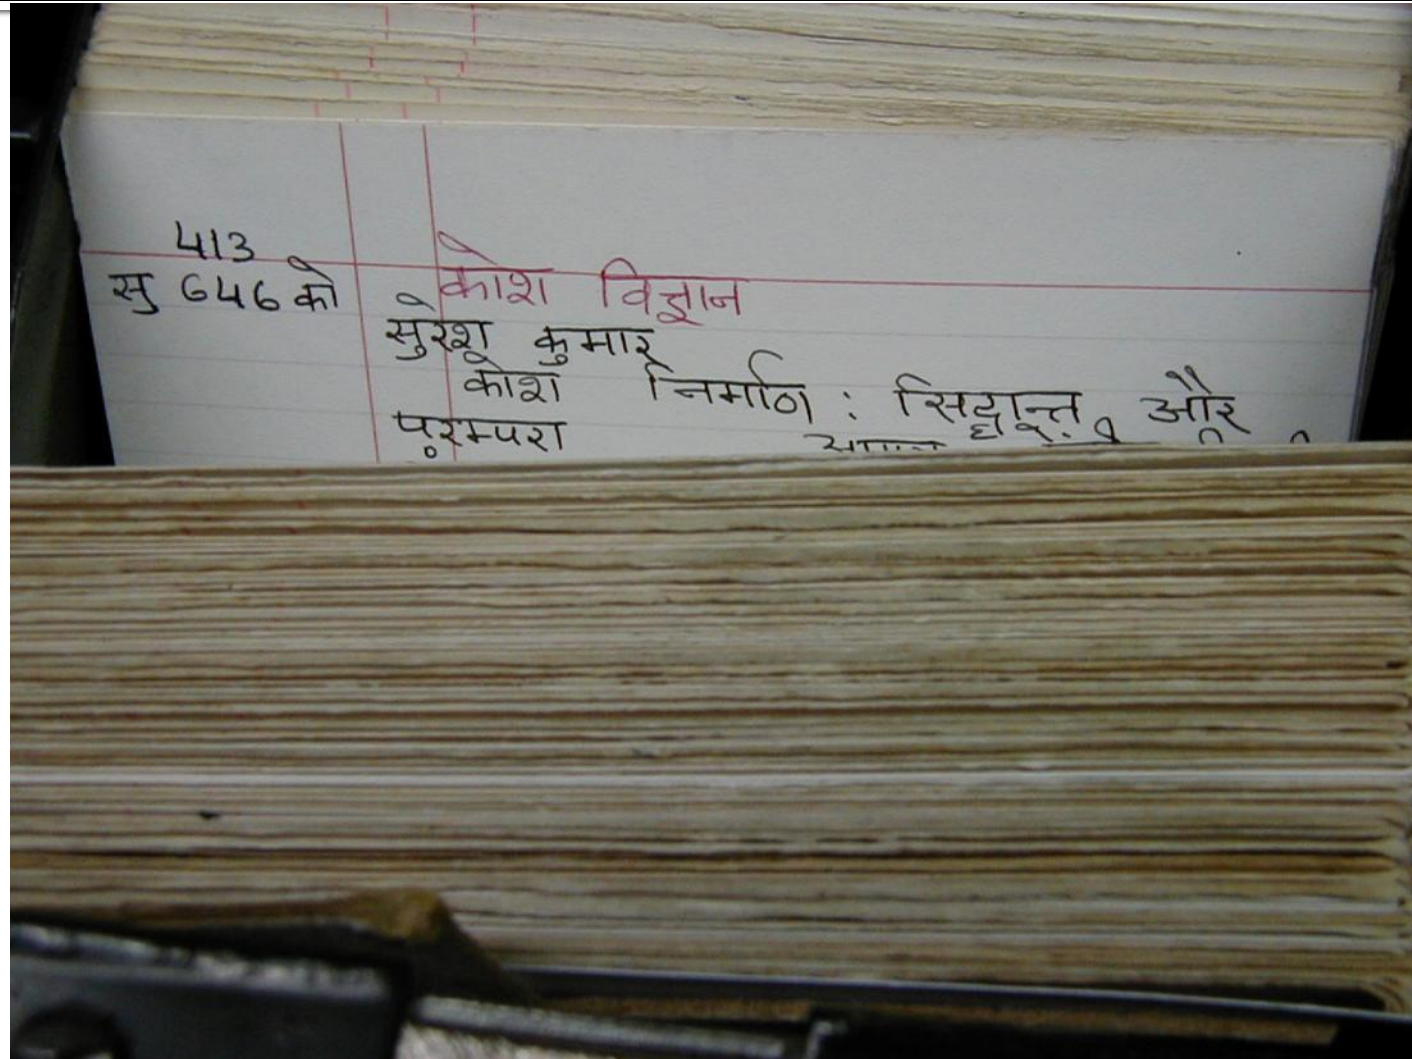 413
सु 646 को
कोश विज्ञान
सुरेश कुमार
कोश निर्माण : सिद्धान्त और
परम्परा